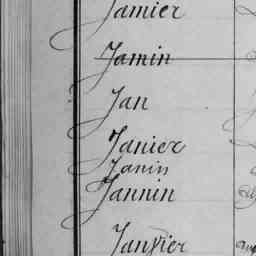 Jamier
Jamin
Jan
Janier
Janin
Jannin
Janvier